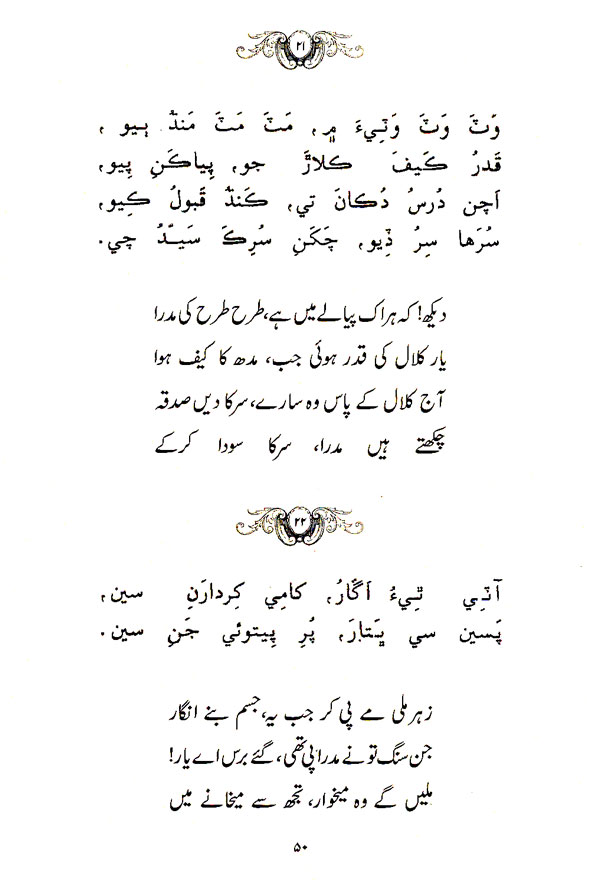 ۲۱
وَٽَ وَٽَ وَٽِيءَ ۾، مَٽَ مَٽَ مَنڌُ ٻيو،
قَدرُ ڪَيفَ ڪَلاڙَ جو، پِياڪَنِ پِيو،
اَچن دُرسُ دُڪانَ تي، ڪَنڌُ قَبولُ ڪِيو،
سُرَها سِرُ ڏِيو، چَکَنِ سُرِڪَ سَيِّدُ چي.
دیکھ! کہ ہر اک پیالے میں ہے، طرح طرح کی مدرا
یار کلال کی قدر ہوئی جب، مدھ کا کیف ہوا
آج کلال کے پاس وہ سارے، سرکا دیں صدقہ
چکھتے ہیں مدرا، سر کا سودا کرکے
۲۲
آڻِي ٿِيءُ اَڱارُ، ڪامِي ڪِردارَنِ سين،
پَسين سي پَٿارَ، پُرِ پِيتوئي جَنِ سين.
زہر ملی مے پی کر جب یہ، جسم بنے انگار
جن سنگ تو نے مدرا پی تھی، گئے برس اے یار!
ملیں گے وہ میخوار، تجھ سے میخانے میں
۵۰